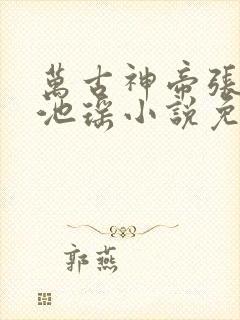 萬古神帝張
池瑤小說免
郭燕